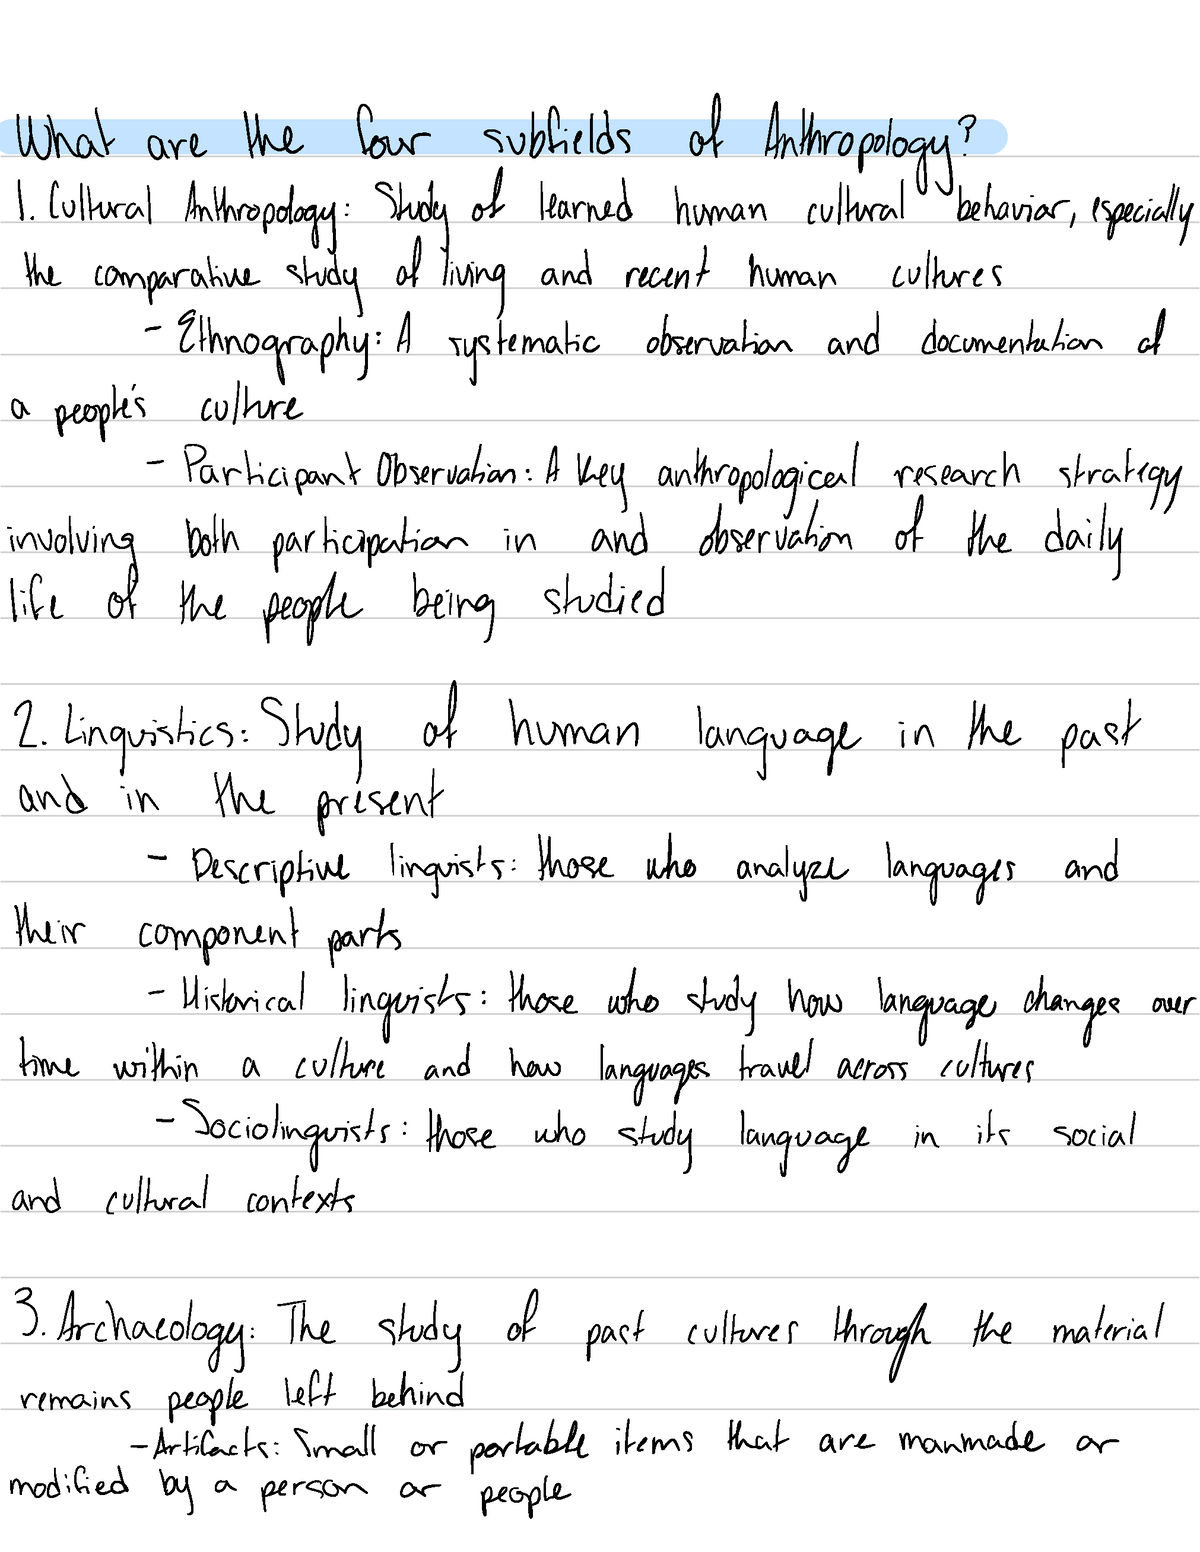 What are the four subfields of Anthropology?
1. Cultural Anthropology: Study of learned human cultural behavior, especially
the comparative study of living and recent human cultures
- Ethnography: A systematic observation and documentation of
a people's culture
- Participant Observation: A key anthropological research strategy
involving both participation in and observation of the daily
life of the people being studied
2. Linguistics: Study of human language in the past
and in the present
- Descriptive linguists: those who analyze languages and
their component parts
- Historical linguists: those who study how language changes over
time within a culture and how languages travel across cultures
- Sociolinguists: those who study language in its social
and cultural contexts
3. Archaeology: The study of past cultures through the material
remains people left behind
- Artifacts: Small or portable items that are manmade or
modified by a person or people